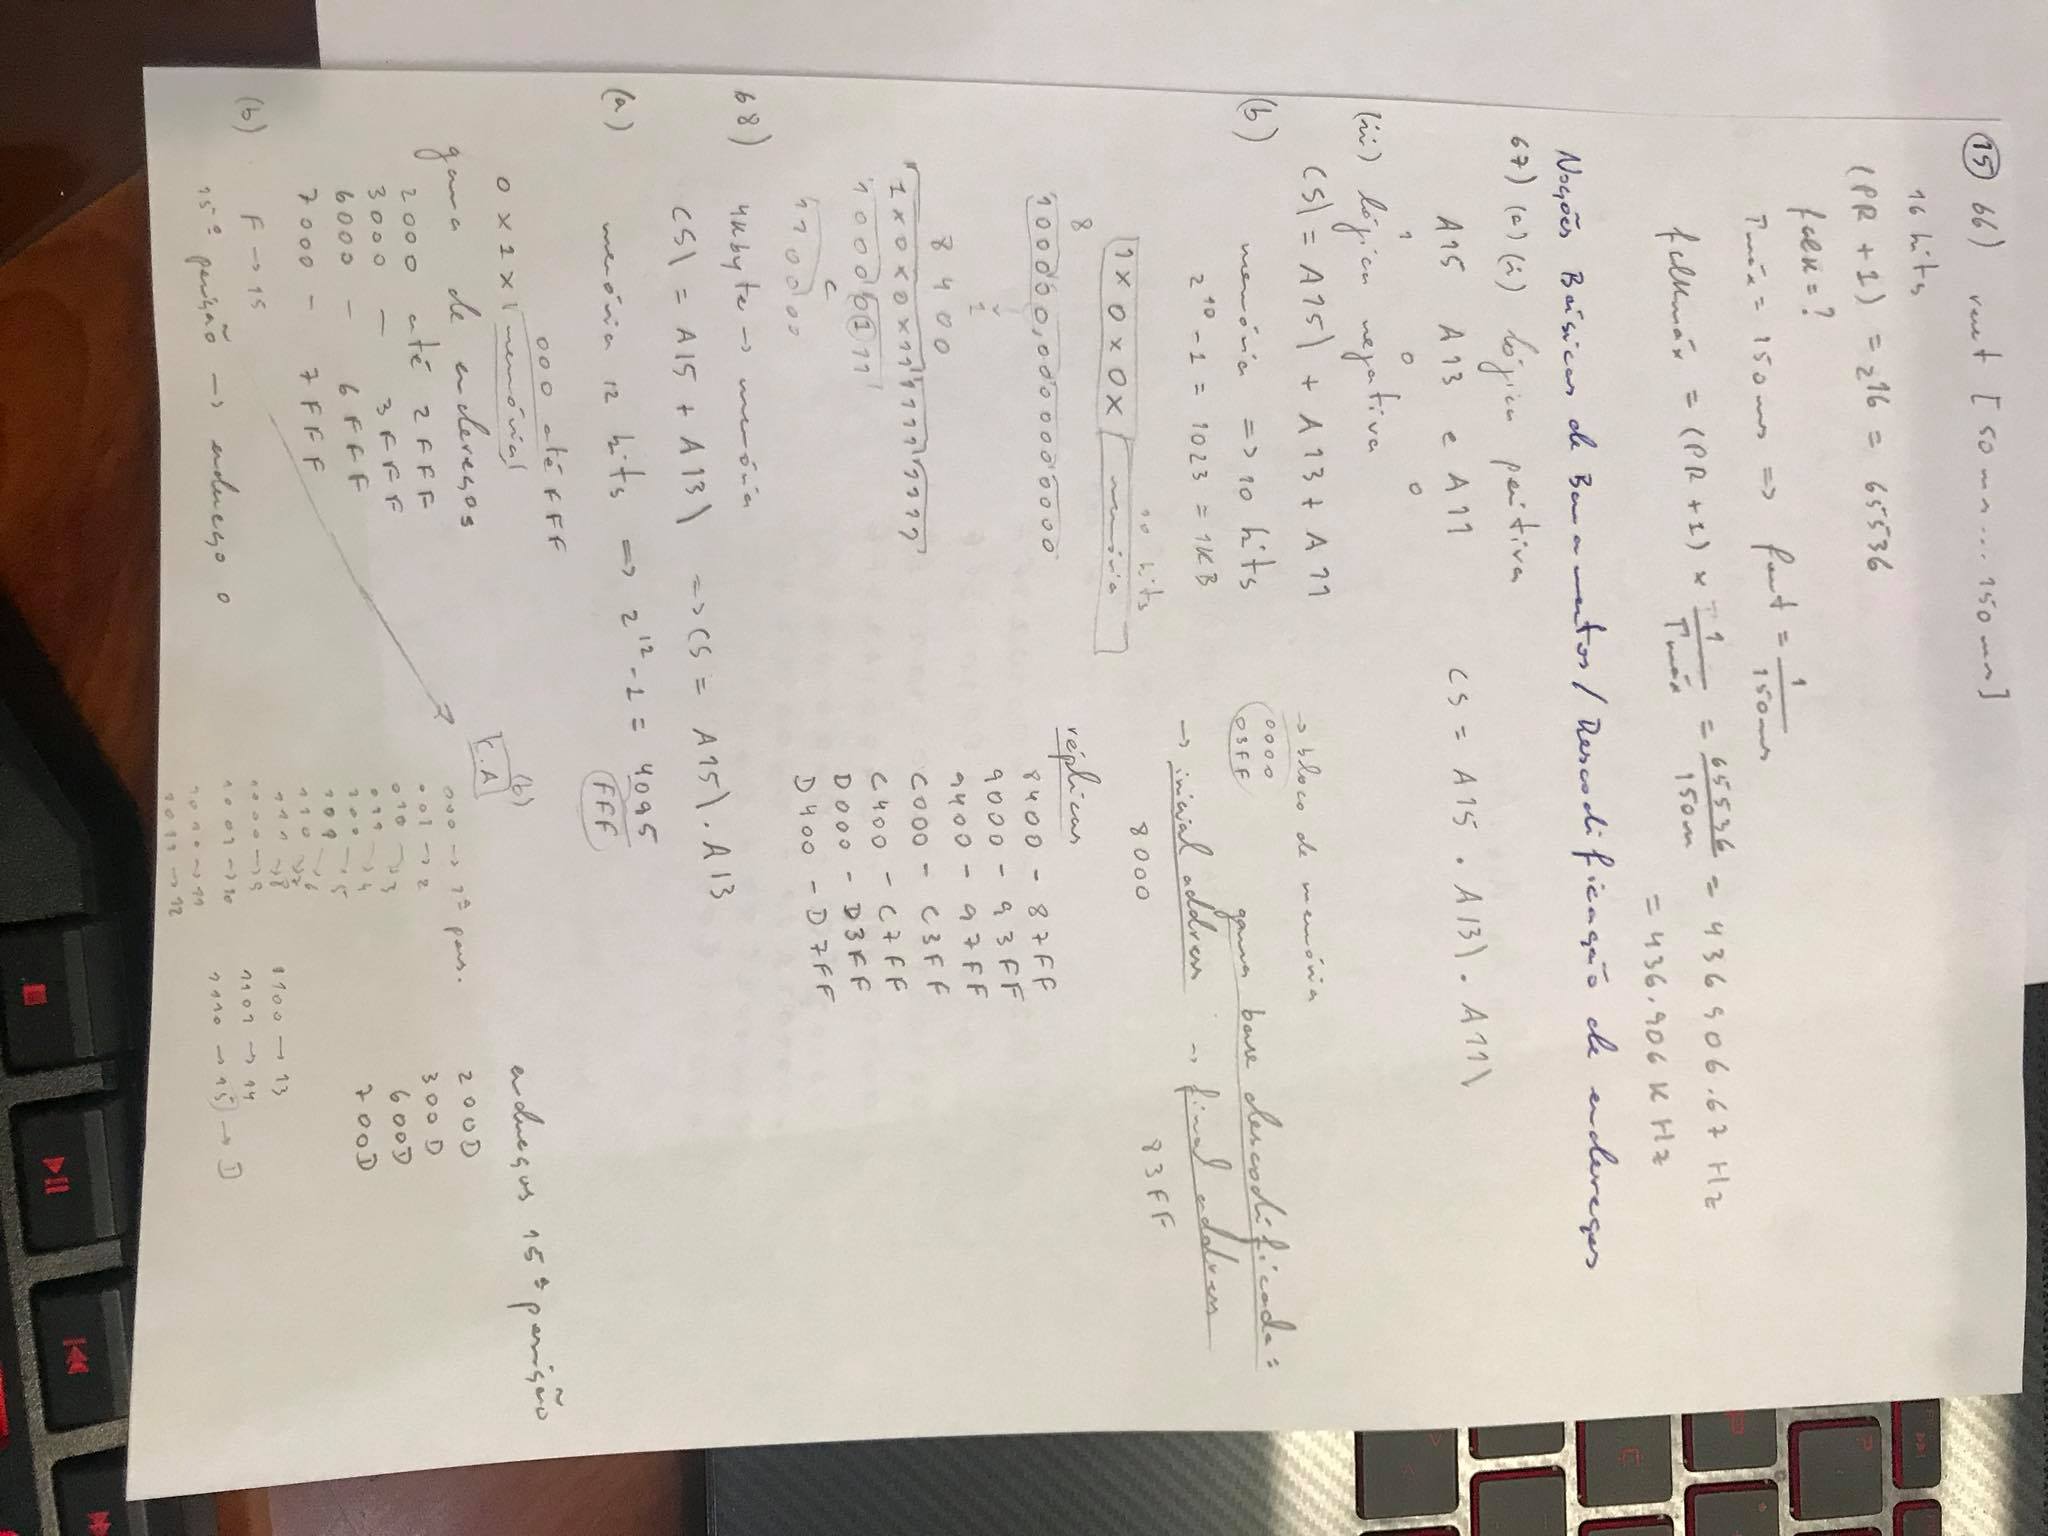 15 66) [50 ms... 150 ms]
16 bits
(PR + 1) = 2^16 = 65536
fclk = ?
Tmáx = 150 ms => fout = 1/150ms
fclkmáx = (PR + 1) × 1/Tmáx = 65536/150m = 436 906.67 Hz
= 436.906 K Hz
Noções Básicas de Barramentos / Descodificação de endereços
67) (a) (i) lógica positiva
A15 A13 e A11 CS = A15 . A13\ . A11\
1 0 0
(ii) lógica negativa
CS\ = A15\ + A13 + A11
(b) memória => 10 bits
2^10 - 1 = 1023 = 1KB
-> bloco de memória
0000
03FF
gama base descodificada:
-> inicial address -> final address
8000 83FF
10 bits
1 x 0 x 0 x memória
8
100000,0000000000
1
8 4 0 0
1 x 0 x 0 x 11 1111 1111
1 0 0 0 0 1 1 1
C
1 1 0 0 0 0
réplicas
8400 - 87FF
9000 - 93FF
9400 - 97FF
C000 - C3FF
C400 - C7FF
D000 - D3FF
D400 - D7FF
68) 4Kbyte -> memória
CS\ = A15 + A13\ => CS = A15\ . A13
(a) memória 12 bits => 2^12 - 1 = 4095
FFF
000 até FFF
0 x 1 x memória
gama de endereços
2000 até 2FFF
3000 - 3FFF
6000 - 6FFF
7000 - 7FFF
(b) F -> 15
15ª posição -> endereço 0
(b)
C.A
000 -> 1ª pos.
001 -> 2
010 -> 3
011 -> 4
100 -> 5
101 -> 6
110 -> 7
111 -> 8
1000 -> 9
1001 -> 10
1010 -> 11
1011 -> 12
1100 -> 13
1101 -> 14
1110 -> 15 -> D
endereços 15ª posição
200D
300D
600D
700D